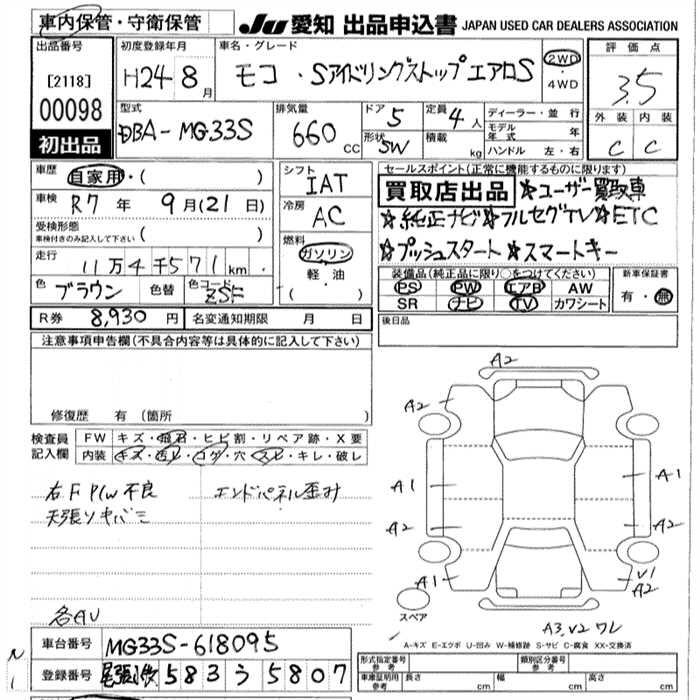 車内保管・守衛保管
JU 愛知 出品申込書 JAPAN USED CAR DEALERS ASSOCIATION
出品番号
[2118]
00098
初出品
初度登録年月
H24 8月
車名・グレード
モコ・SアイドリングストップエアロS
2WD
・
4WD
評価点
3.5
外装 内装
C C
型式
DBA-MG33S
排気量
660 CC
ドア 5
形状 SW
定員 4人
積載 kg
ディーラー・並行
モデル年式 年
ハンドル 左・右
車歴 自家用・( )
車検 R7年 9月(21日)
受検形態
車検付きのみ記入して下さい ( )
走行 11万4千571km
色 ブラウン 色替 色コード ZSF
シフト
IAT
冷房
AC
燃料
ガソリン
軽・油
( )
セールスポイント(正常に機能するものに限ります)
買取店出品 ☆ユーザー買取車
☆純正ナビ☆フルセグTV☆ETC
☆プッシュスタート☆スマートキー
装備品(純正品に限り○をつけてください)
PS PW エアB AW
SR ナビ TV カワシート
新車保証書
有・無
R券 8,930円 名変通知期限 月 日
後日品
注意事項申告欄(不具合内容等は具体的に記入して下さい)
修復歴 有(箇所 )
検査員記入欄
FW キズ・飛石・ヒビ割・リペア跡・X要
内装 キズ・汚レ・コゲ・穴・スレ・キレ・破レ
右F P/W不良 エンドパネル歪み
天張り
各AU
A2
A2
A1 A1
A2 A2
A1 V1
A2
スペア
A3,V2 ワレ
A-キズ E-エクボ U-凹み W-補修跡 S-サビ C-腐食 XX-交換済
車台番号 MG33S-618095
登録番号 尾張小牧 583 う 5807
形式指定番号 参考
類別区分番号 参考
車庫証明用参考 長さ cm 幅 cm 高さ cm